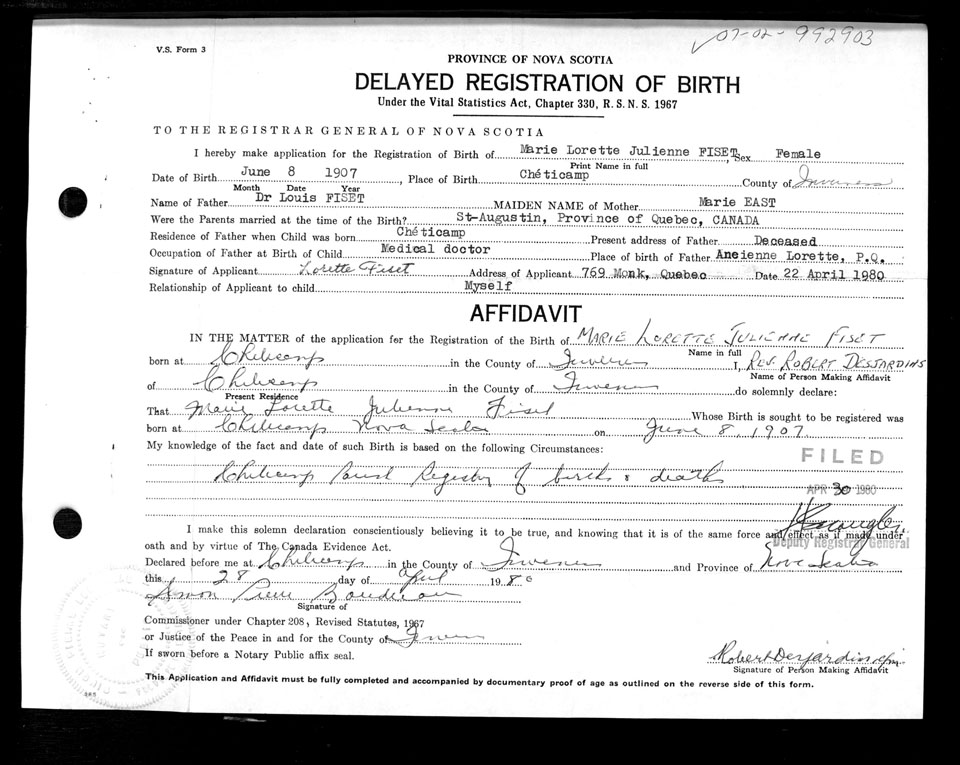 07-02-992903
V.S. Form 3
PROVINCE OF NOVA SCOTIA
DELAYED REGISTRATION OF BIRTH
Under the Vital Statistics Act, Chapter 330, R.S.N.S. 1967
TO THE REGISTRAR GENERAL OF NOVA SCOTIA
I hereby make application for the Registration of Birth of Marie Lorette Julienne FISET Sex Female
Print Name in full
Date of Birth June 8 1907, Place of Birth Chéticamp County of Inverness
Month Date Year
Name of Father Dr Louis FISET MAIDEN NAME of Mother Marie EAST
Were the Parents married at the time of the Birth? St-Augustin, Province of Quebec, CANADA
Residence of Father when Child was born Chéticamp Present address of Father Deceased
Occupation of Father at Birth of Child Medical doctor Place of birth of Father Ancienne Lorette, P.Q.
Signature of Applicant Lorette Fiset Address of Applicant 769 Monk, Quebec Date 22 April 1980
Relationship of Applicant to child Myself
AFFIDAVIT
IN THE MATTER of the application for the Registration of the Birth of MARIE LORETTE JULIENNE FISET
Name in full
born at Cheticamp in the County of Inverness I, REV. ROBERT DESJARDINS
Name of Person Making Affidavit
of Cheticamp in the County of Inverness do solemnly declare:
Present Residence
That Marie Lorette Julienne Fiset Whose Birth is sought to be registered was
born at Cheticamp Nova Scotia on June 8, 1907
My knowledge of the fact and date of such Birth is based on the following Circumstances:
FILED
Cheticamp Parish Registry of births & deaths
APR 30 1980
I make this solemn declaration conscientiously believing it to be true, and knowing that it is of the same force and effect as if made under
Deputy Registrar General
oath and by virtue of The Canada Evidence Act.
Declared before me at Cheticamp in the County of Inverness and Province of Nova Scotia
this 28 day of April 1980
Signature of
Commissioner under Chapter 208, Revised Statutes, 1967
or Justice of the Peace in and for the County of Inverness
If sworn before a Notary Public affix seal.
Robert Desjardins
Signature of Person Making Affidavit
This Application and Affidavit must be fully completed and accompanied by documentary proof of age as outlined on the reverse side of this form.